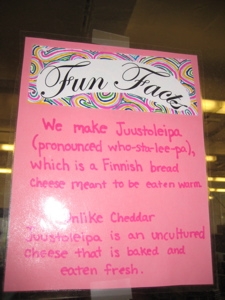 Fun Facts
We make Juustoleipa
(pronounced who-sta-lee-pa),
which is a Finnish bread
cheese meant to be eaten warm
Unlike Cheddar
Juustoleipa is an uncultured
cheese that is baked and
eaten fresh.